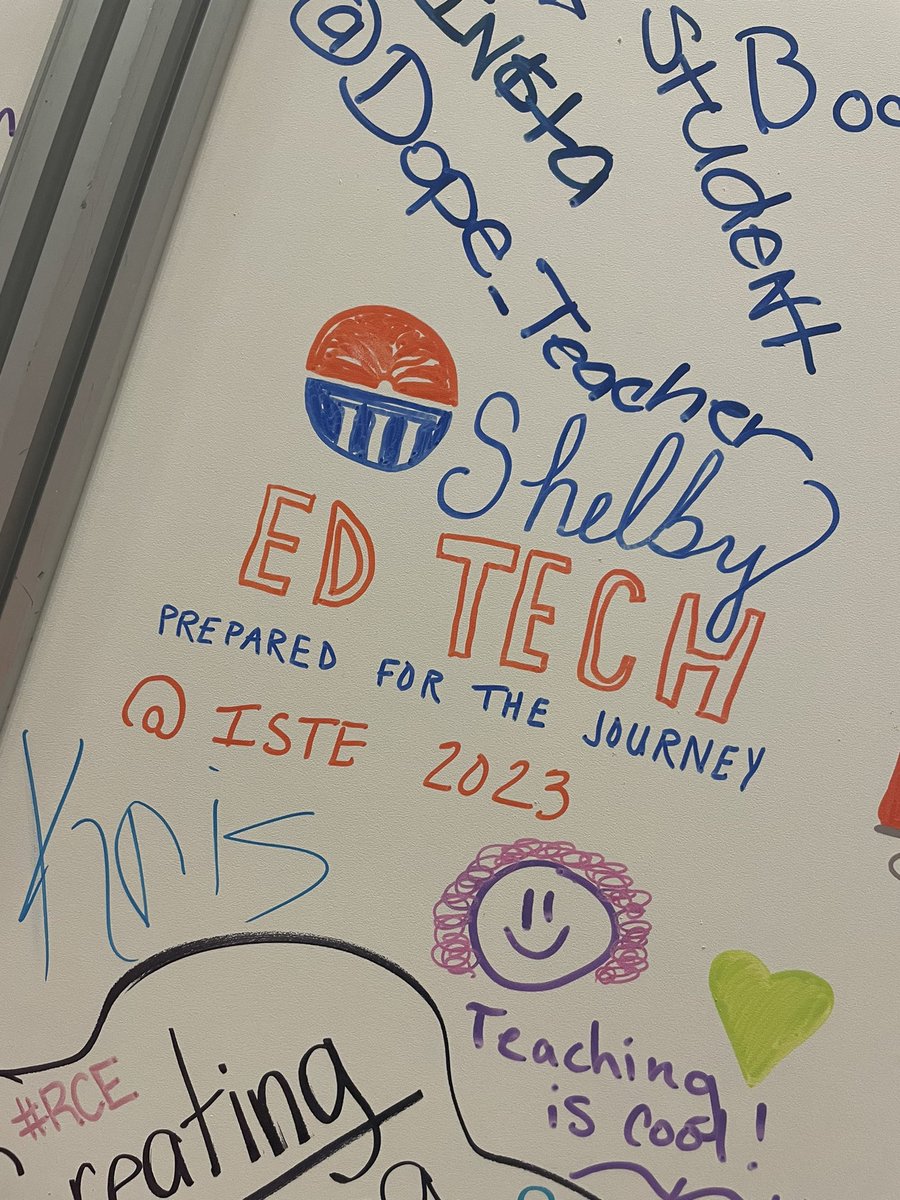 INSTA
@Dope_Teacher
Student
Boo
Shelby
ED TECH
PREPARED FOR THE JOURNEY
@ ISTE 2023
Kris
Teaching
is cool!
#RCE
reating